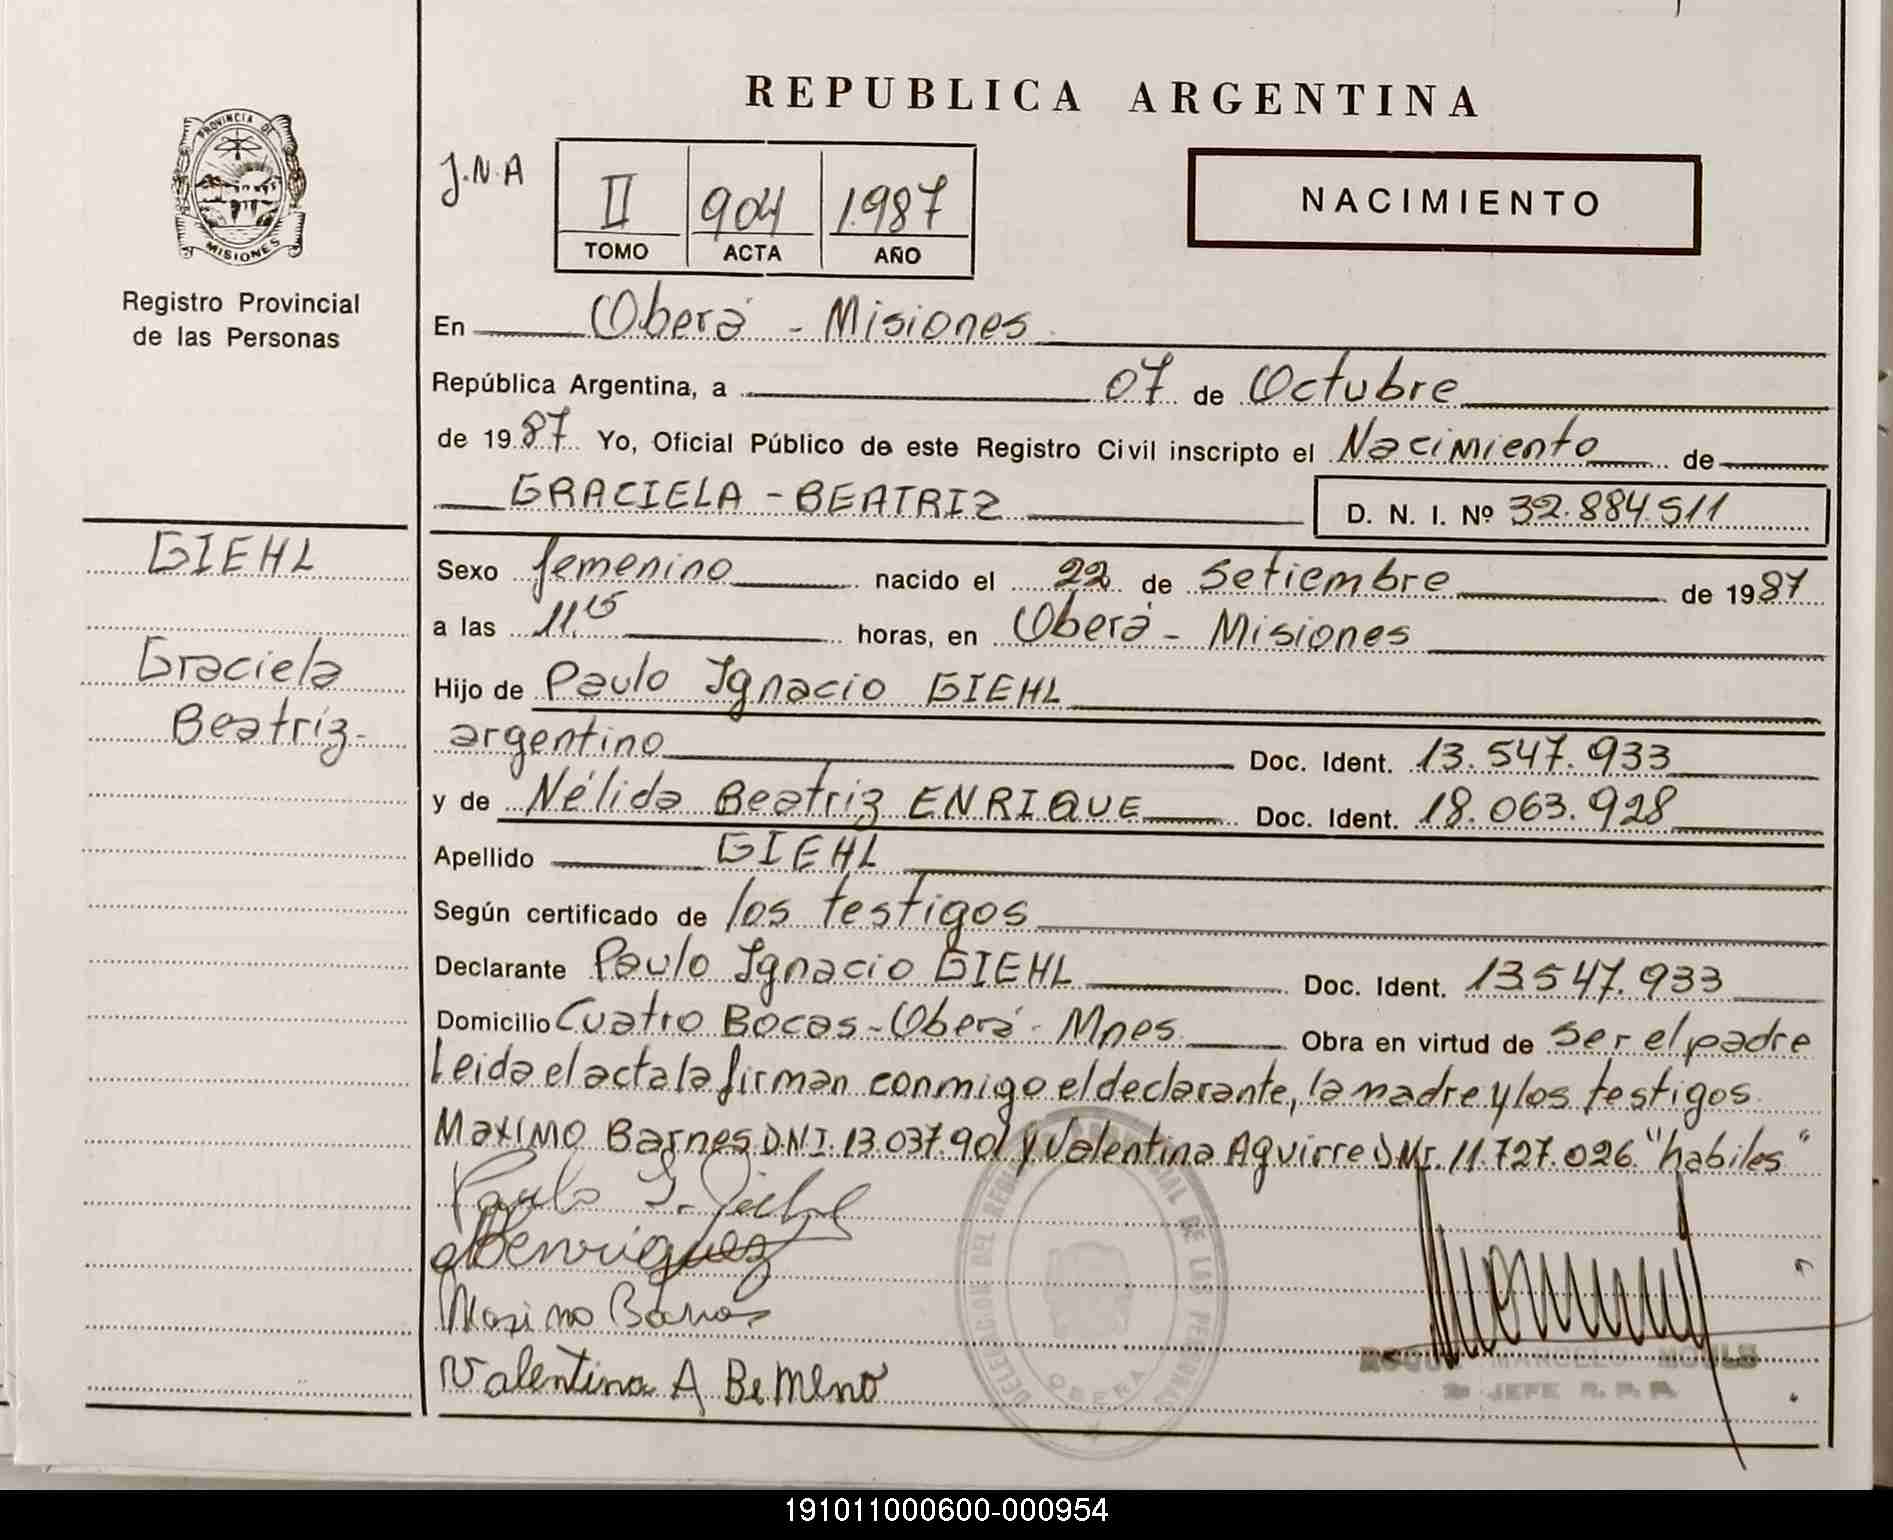 REPUBLICA ARGENTINA
PROVINCIA DE
MISIONES
Registro Provincial
de las Personas
J.N.A
II 904 1.987
TOMO ACTA AÑO
NACIMIENTO
En Oberá - Misiones
República Argentina, a 07 de Octubre
de 19 87 Yo, Oficial Público de este Registro Civil inscripto el Nacimiento de
GRACIELA - BEATRIZ D. N. I. Nº 32.884.511
GIEHL
Graciela
Beatriz-
Sexo femenino nacido el 22 de Setiembre de 19 87
a las 11,15 horas, en Oberá - Misiones
Hijo de Paulo Ignacio GIEHL
argentino Doc. Ident. 13.547.933
y de Nélida Beatriz ENRIQUE Doc. Ident. 18.063.928
Apellido GIEHL
Según certificado de los testigos
Declarante Paulo Ignacio GIEHL Doc. Ident. 13547.933
Domicilio Cuatro Bocas - Oberá - Mnes. Obra en virtud de ser el padre
Leida el acta la firman conmigo el declarante, la madre y los testigos
Maximo Barnes D.N.I. 13.037.901 y Valentina Aguirre DNI. 11.727.026 "habiles"
Paulo I. Giehl
Maximo
Valentina A
DELEGACION DEL REGISTRO PROVINCIAL DE LAS PERSONAS
OBERA
MARCELO
2º JEFE R. P. P.
191011000600-000954